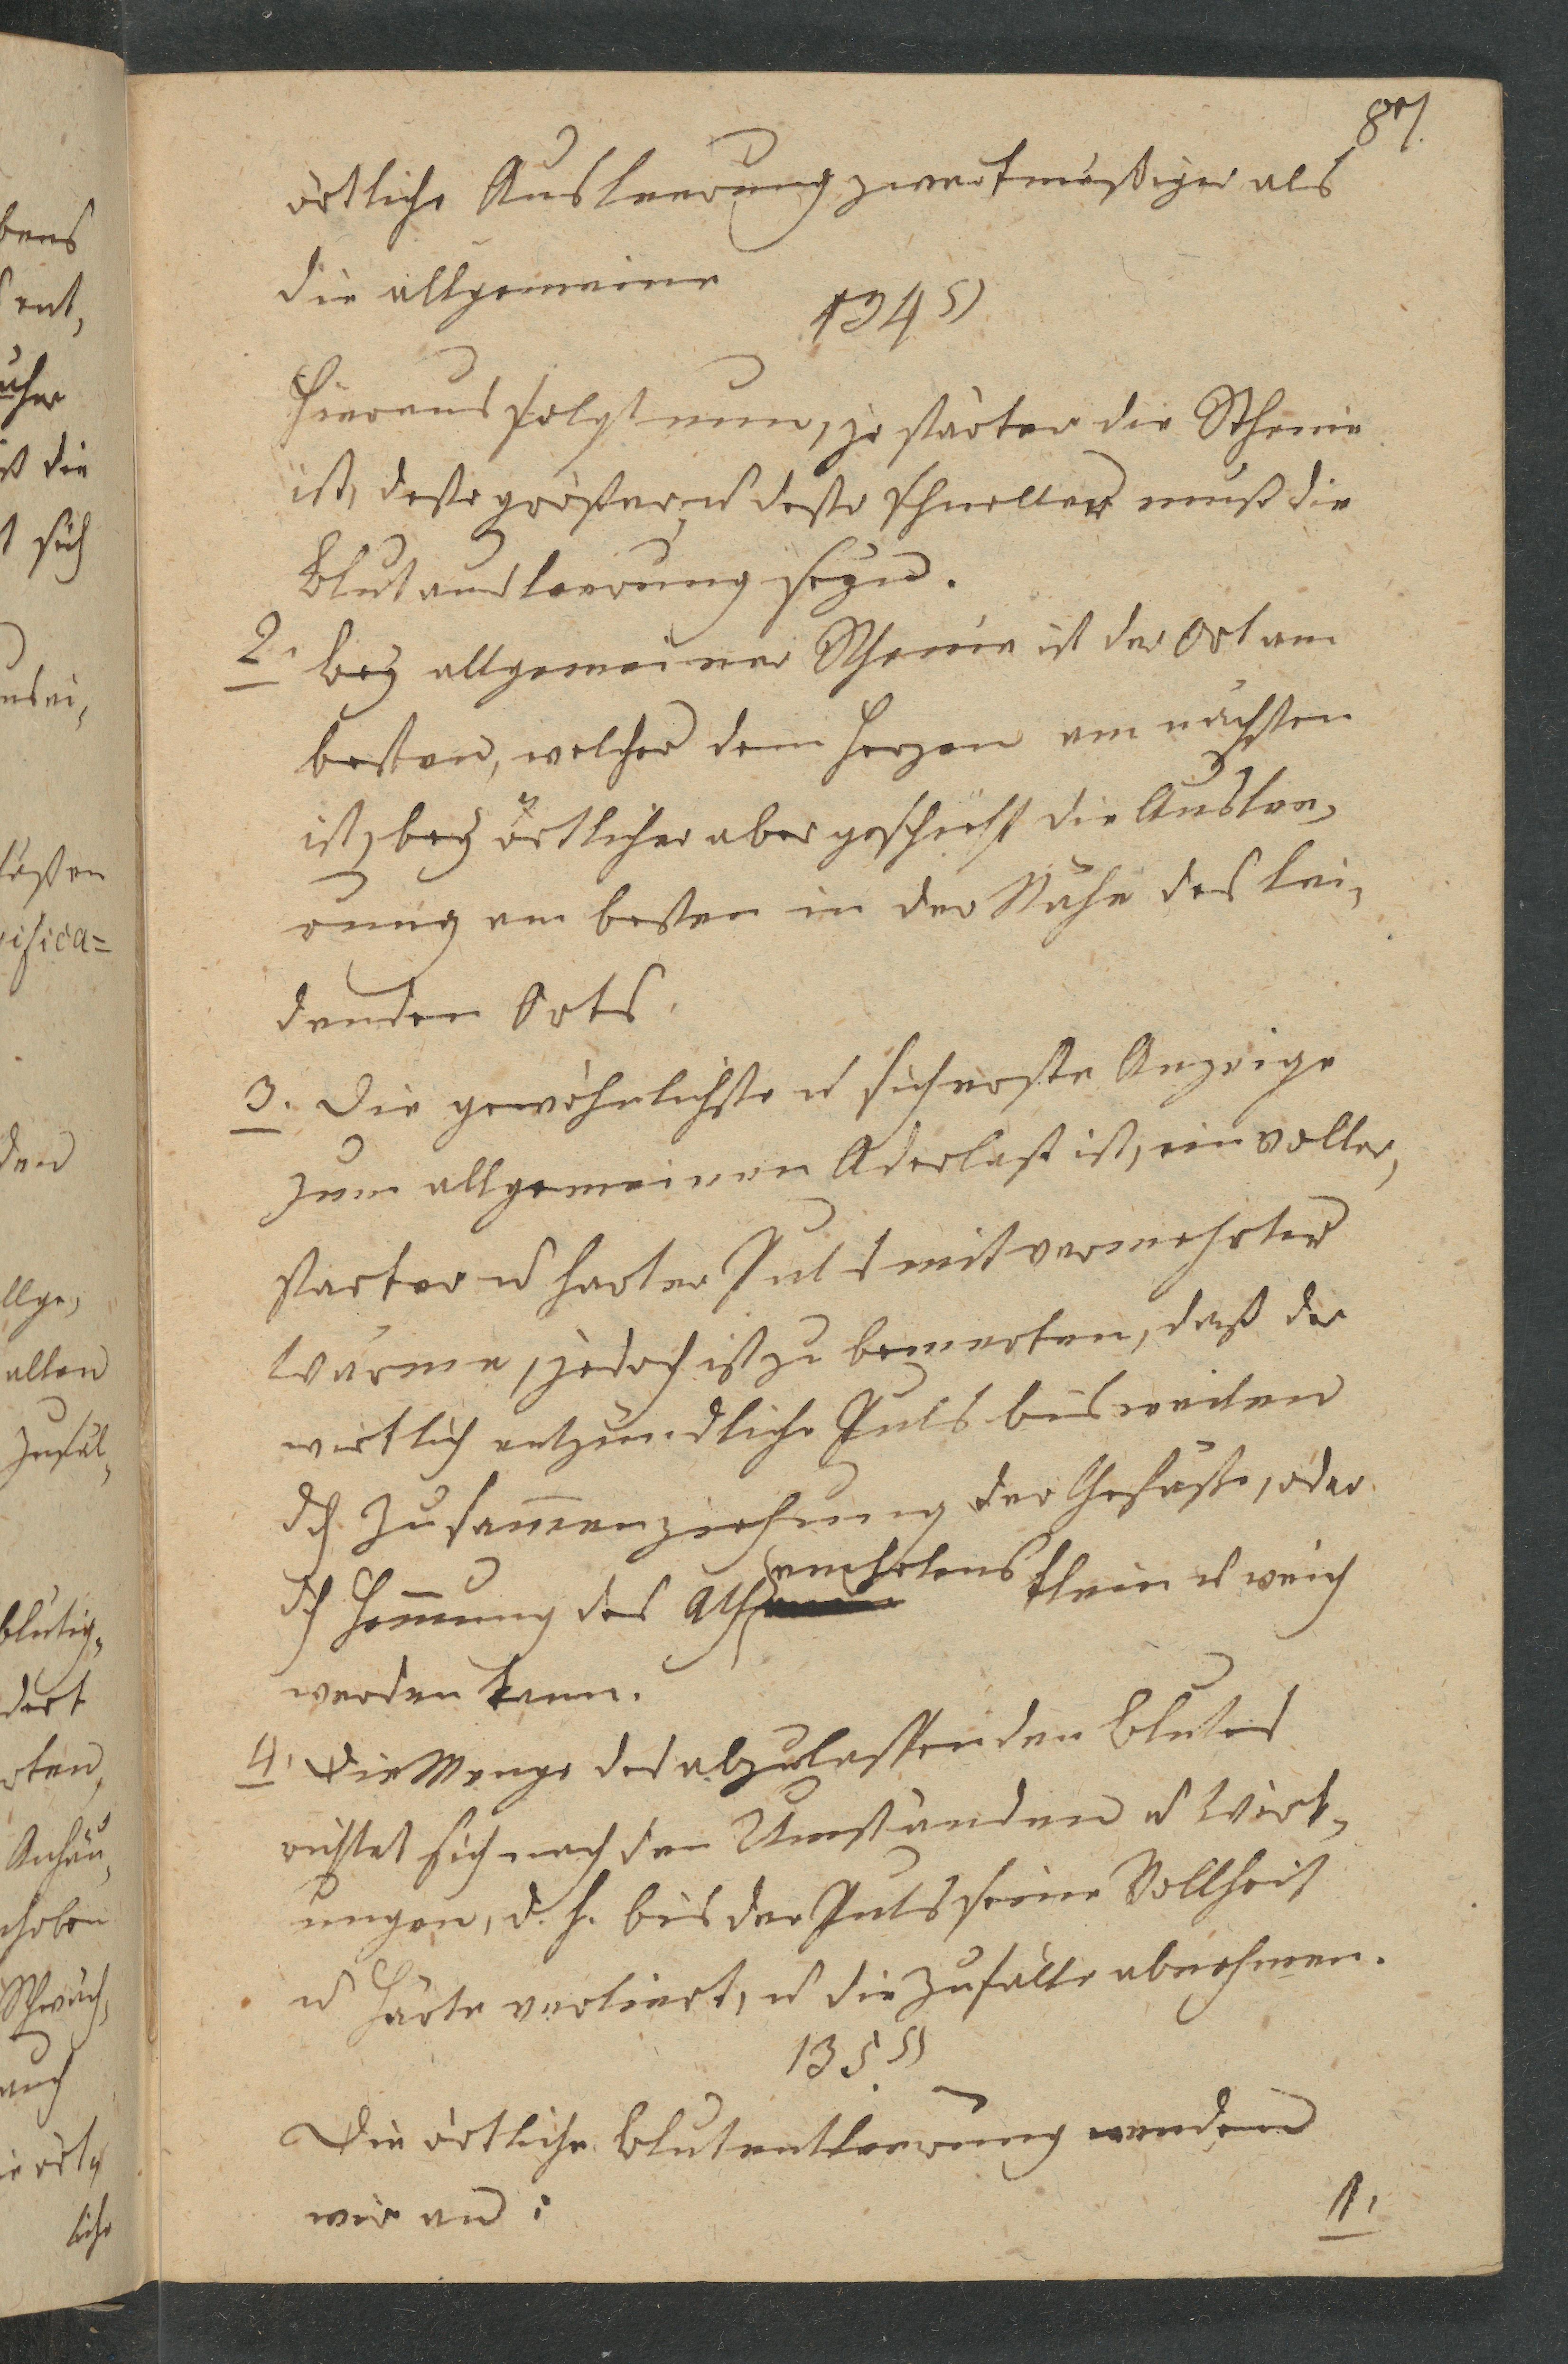 87.
örtliche Ausleerung zweckmäßiger als
die allgemeine
134 §
Hieraus folgt nun, je stärker die Sthenie
ist, desto größer, u desto schneller muß die
Blutausleerung seyn.
2. bey allgemeiner Sthenie ist der Ort am
besten, welcher dem Herzen am nächsten
ist, bey örtlicher aber geschieht die Auslee,
rung am besten in der Nähe des lei,
denden Orts.
3. Die gewöhnlichste u sicherste Anzeige
zum allgemeinen Aderlaß ist, ein voller,
starker u harter Puls mit vermehrter
Wärme, jedoch ist zu bemerken, daß der
wirklich entzündliche Puls bisweilen
dch Zusam̅enziehung der Gefäße, oder
dch Hem̅ung des Athemholens klein u weich
werden kann.
4. Die Menge des abzulassenden Blutes
richtet sich nach den Umständen u Wirk,
ungen, d. h. bis der Puls seine Vollheit
u Härte verliert, u die Zufälle abnehmen.
135. §
Die örtliche Blutentleerung wenden
wir an:
1.
bens
ent,
ist die
t sich
llge,
allen
Zufäl,
blutig,
Anhäu,
Schwäch,
auch
ie ört,
liche